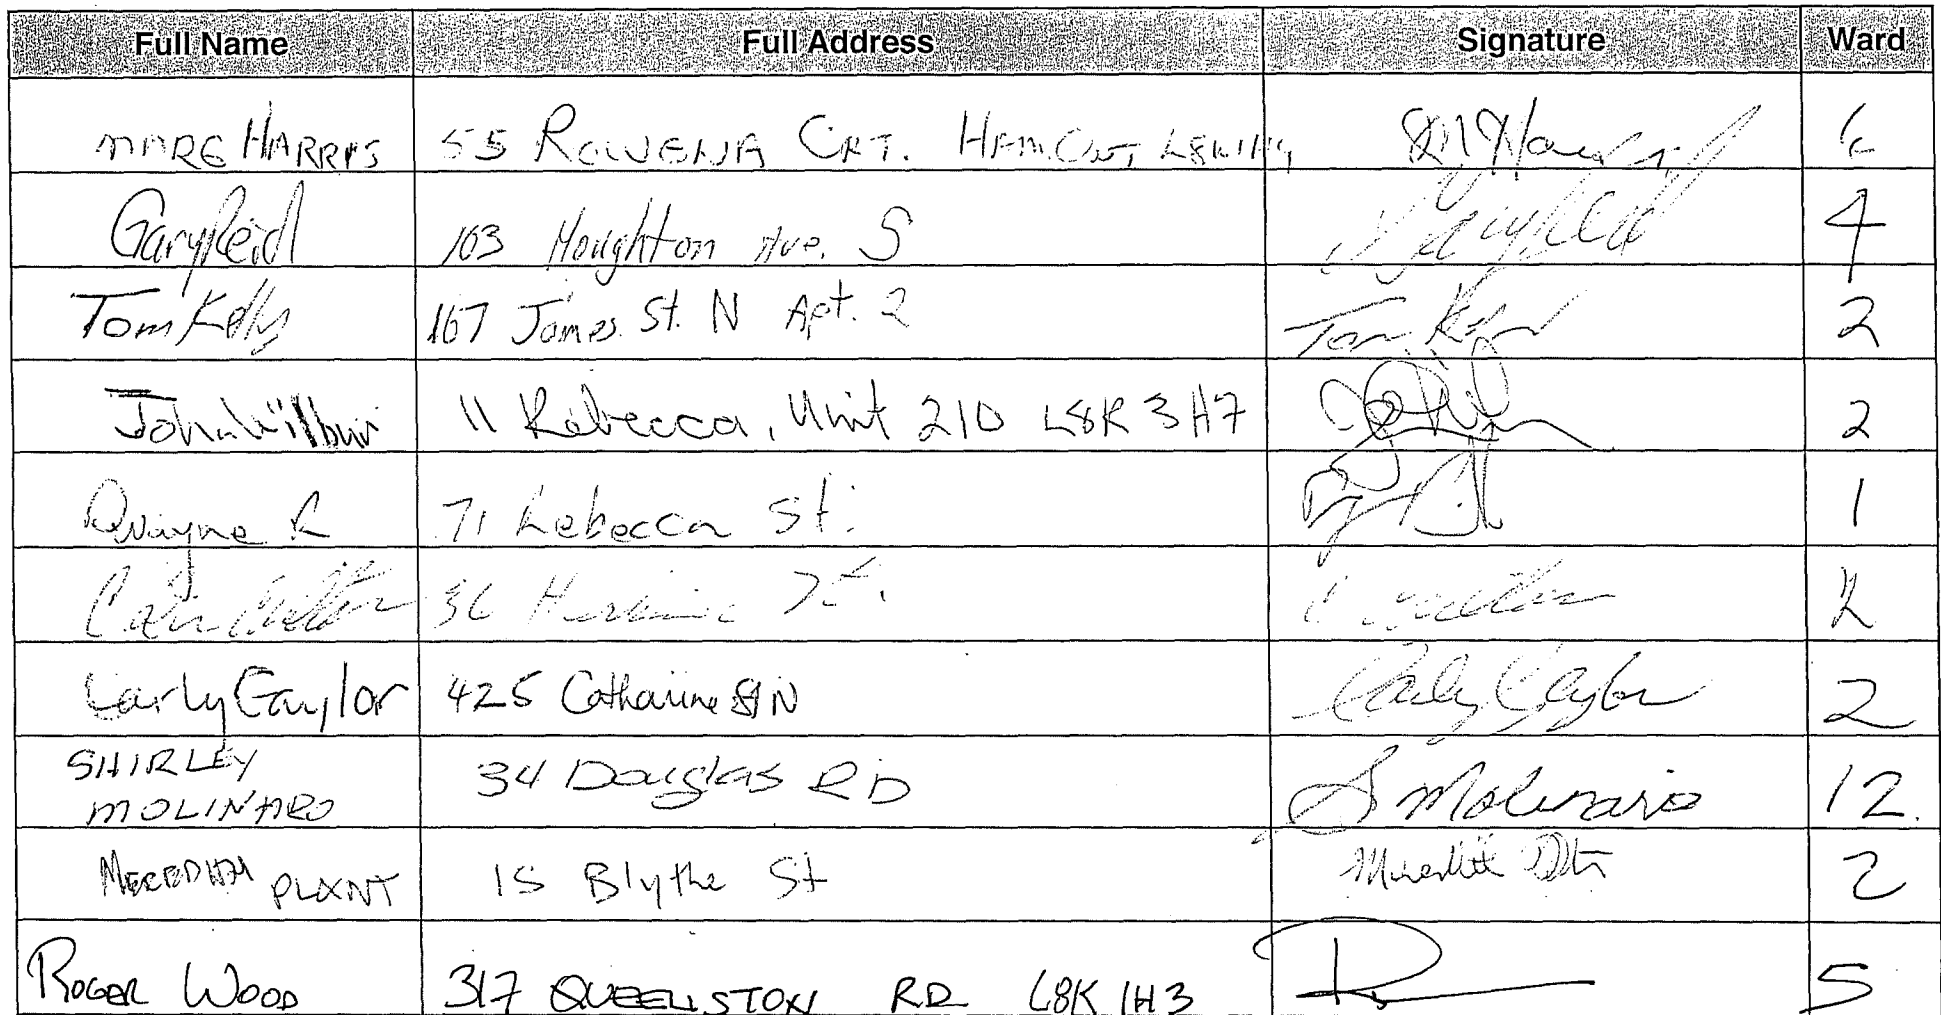 Full Name Full Address Signature Ward
MARG HARRIS 55 ROWENA CRT. HAM. ONT, 6
Gary Reid 103 Houghton Ave. S Gary Reid 4
Tom Kelly 167 James St. N Apt. 2 Tom Kelly 2
John Wilbur 11 Rebecca, Unit 210 L8R 3H7 2
Dwayne R 71 Rebecca St. 1
Colin 36 St. 2
Carly Gaylor 425 Catharine St N Carly Gaylor 2
SHIRLEY
MOLINARO 34 Douglas RD S Molinaro 12
MEREDITH PLANT 15 Blythe St Meredith 2
ROGER WOOD 317 QUEENSTON RD L8K 1H3 5